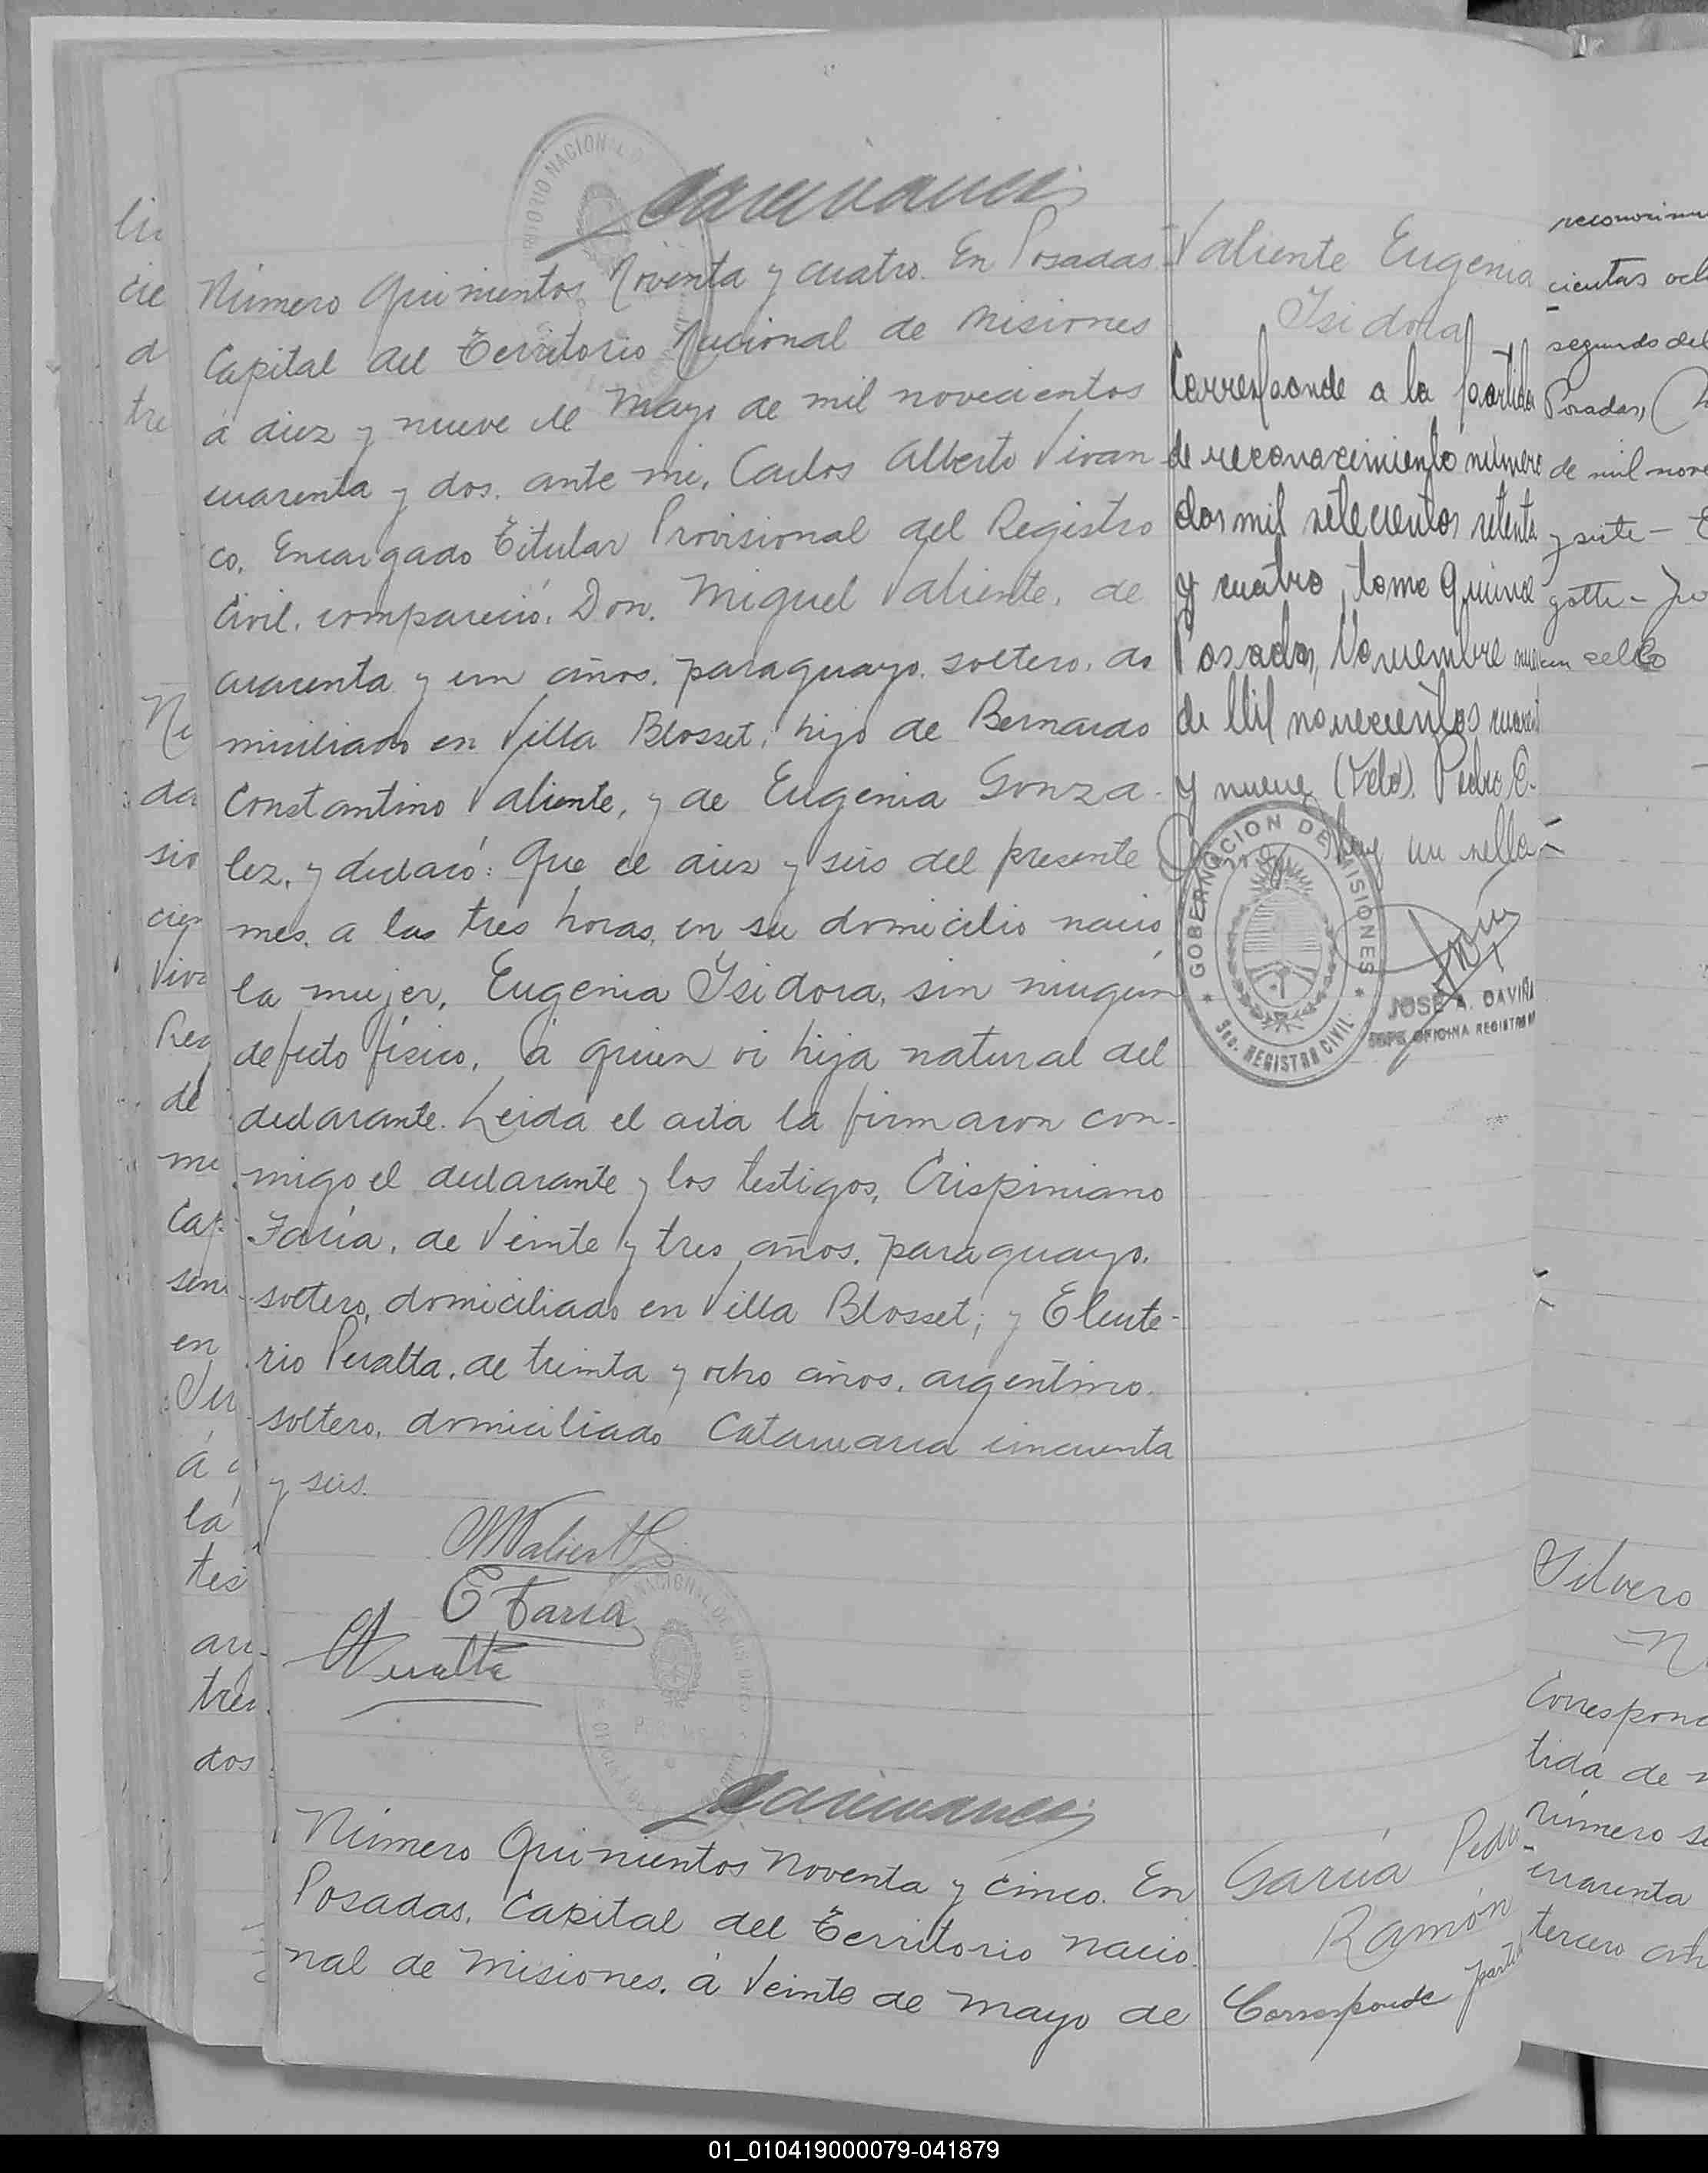 Número Quinientos Noventa y cuatro. En Posadas
Capital del Territorio Nacional de Misiones
á diez y nueve de Mayo de mil novecientos
cuarenta y dos. ante mi, Carlos Alberto Vivan
co, Encargado Titular Provisional del Registro
Civil, compareció, Don. Miguel Valiente, de
cuarenta y un años, paraguayo, soltero, do
miciliado en Villa Blosset, hijo de Bernardo
Constantino Valiente, y de Eugenia Gonza-
lez, y declaró: Que el diez y seis del presente
mes, a las tres horas, en su domicilio nació
la mujer, Eugenia Ysidora, sin ningún
defecto físico, á quien vi hija natural del
declarante. Leida el acta la firmaron con-
migo el declarante y los testigos, Crispiniano
Faría, de Veinte y tres años, paraguayo,
soltero, domiciliado en Villa Blosset; y Eleute-
rio Peralta, de treinta y ocho años, argentino,
soltero, domiciliado Catamarca cincuenta
y seis.
MValiente
C Faria
EPeralta
Valiente Eugenia
Ysidora
Corresponde a la partida
de reconocimiento número
dos mil setecientos setenta
y cuatro, tomo quince
Posadas, Noviembre
de Mil novecientos
y nueve (Fdo). Pedro C.
hay un sello-
GOBERNACION DE MISIONES
Sec. REGISTRO CIVIL
JOSÉ A. DAVIÑA
JEFE OFICINA REGISTRO
Número Quinientos Noventa y cinco. En
Posadas, Capital del Territorio Nacio
nal de Misiones, á Veinte de mayo de
García Pedro
Ramón
Corresponde parti
lic
cie
d
tre
Nú
da
sio
cien
Viva
Reg
de
me
Cap
en
á
la
tes
tres
dos
reconocimi
cientas och
segundo del
Posadas,
de mil nove
y siete-
un sello
Silvero
Correspond
tida de n
número s
cuarenta
tercero
01_010419000079-041879